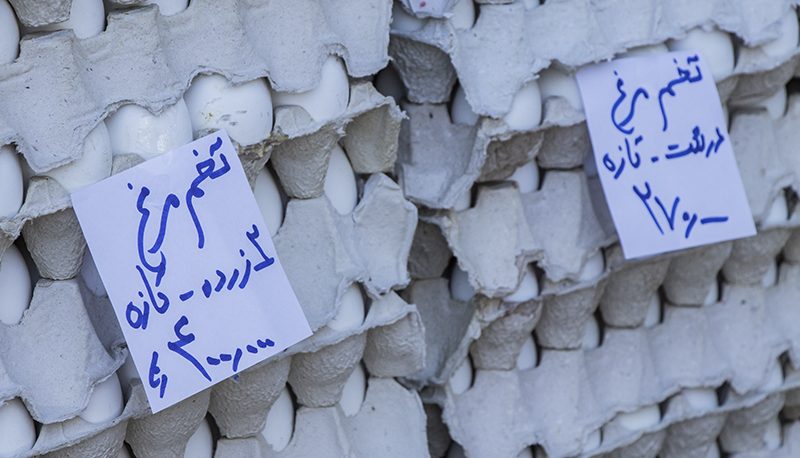 تخم مرغ
۲ زرده - تازه
۴۰۰,۰۰۰ ریال
تخم مرغ
درشت - تازه
۲۷۰,۰۰۰